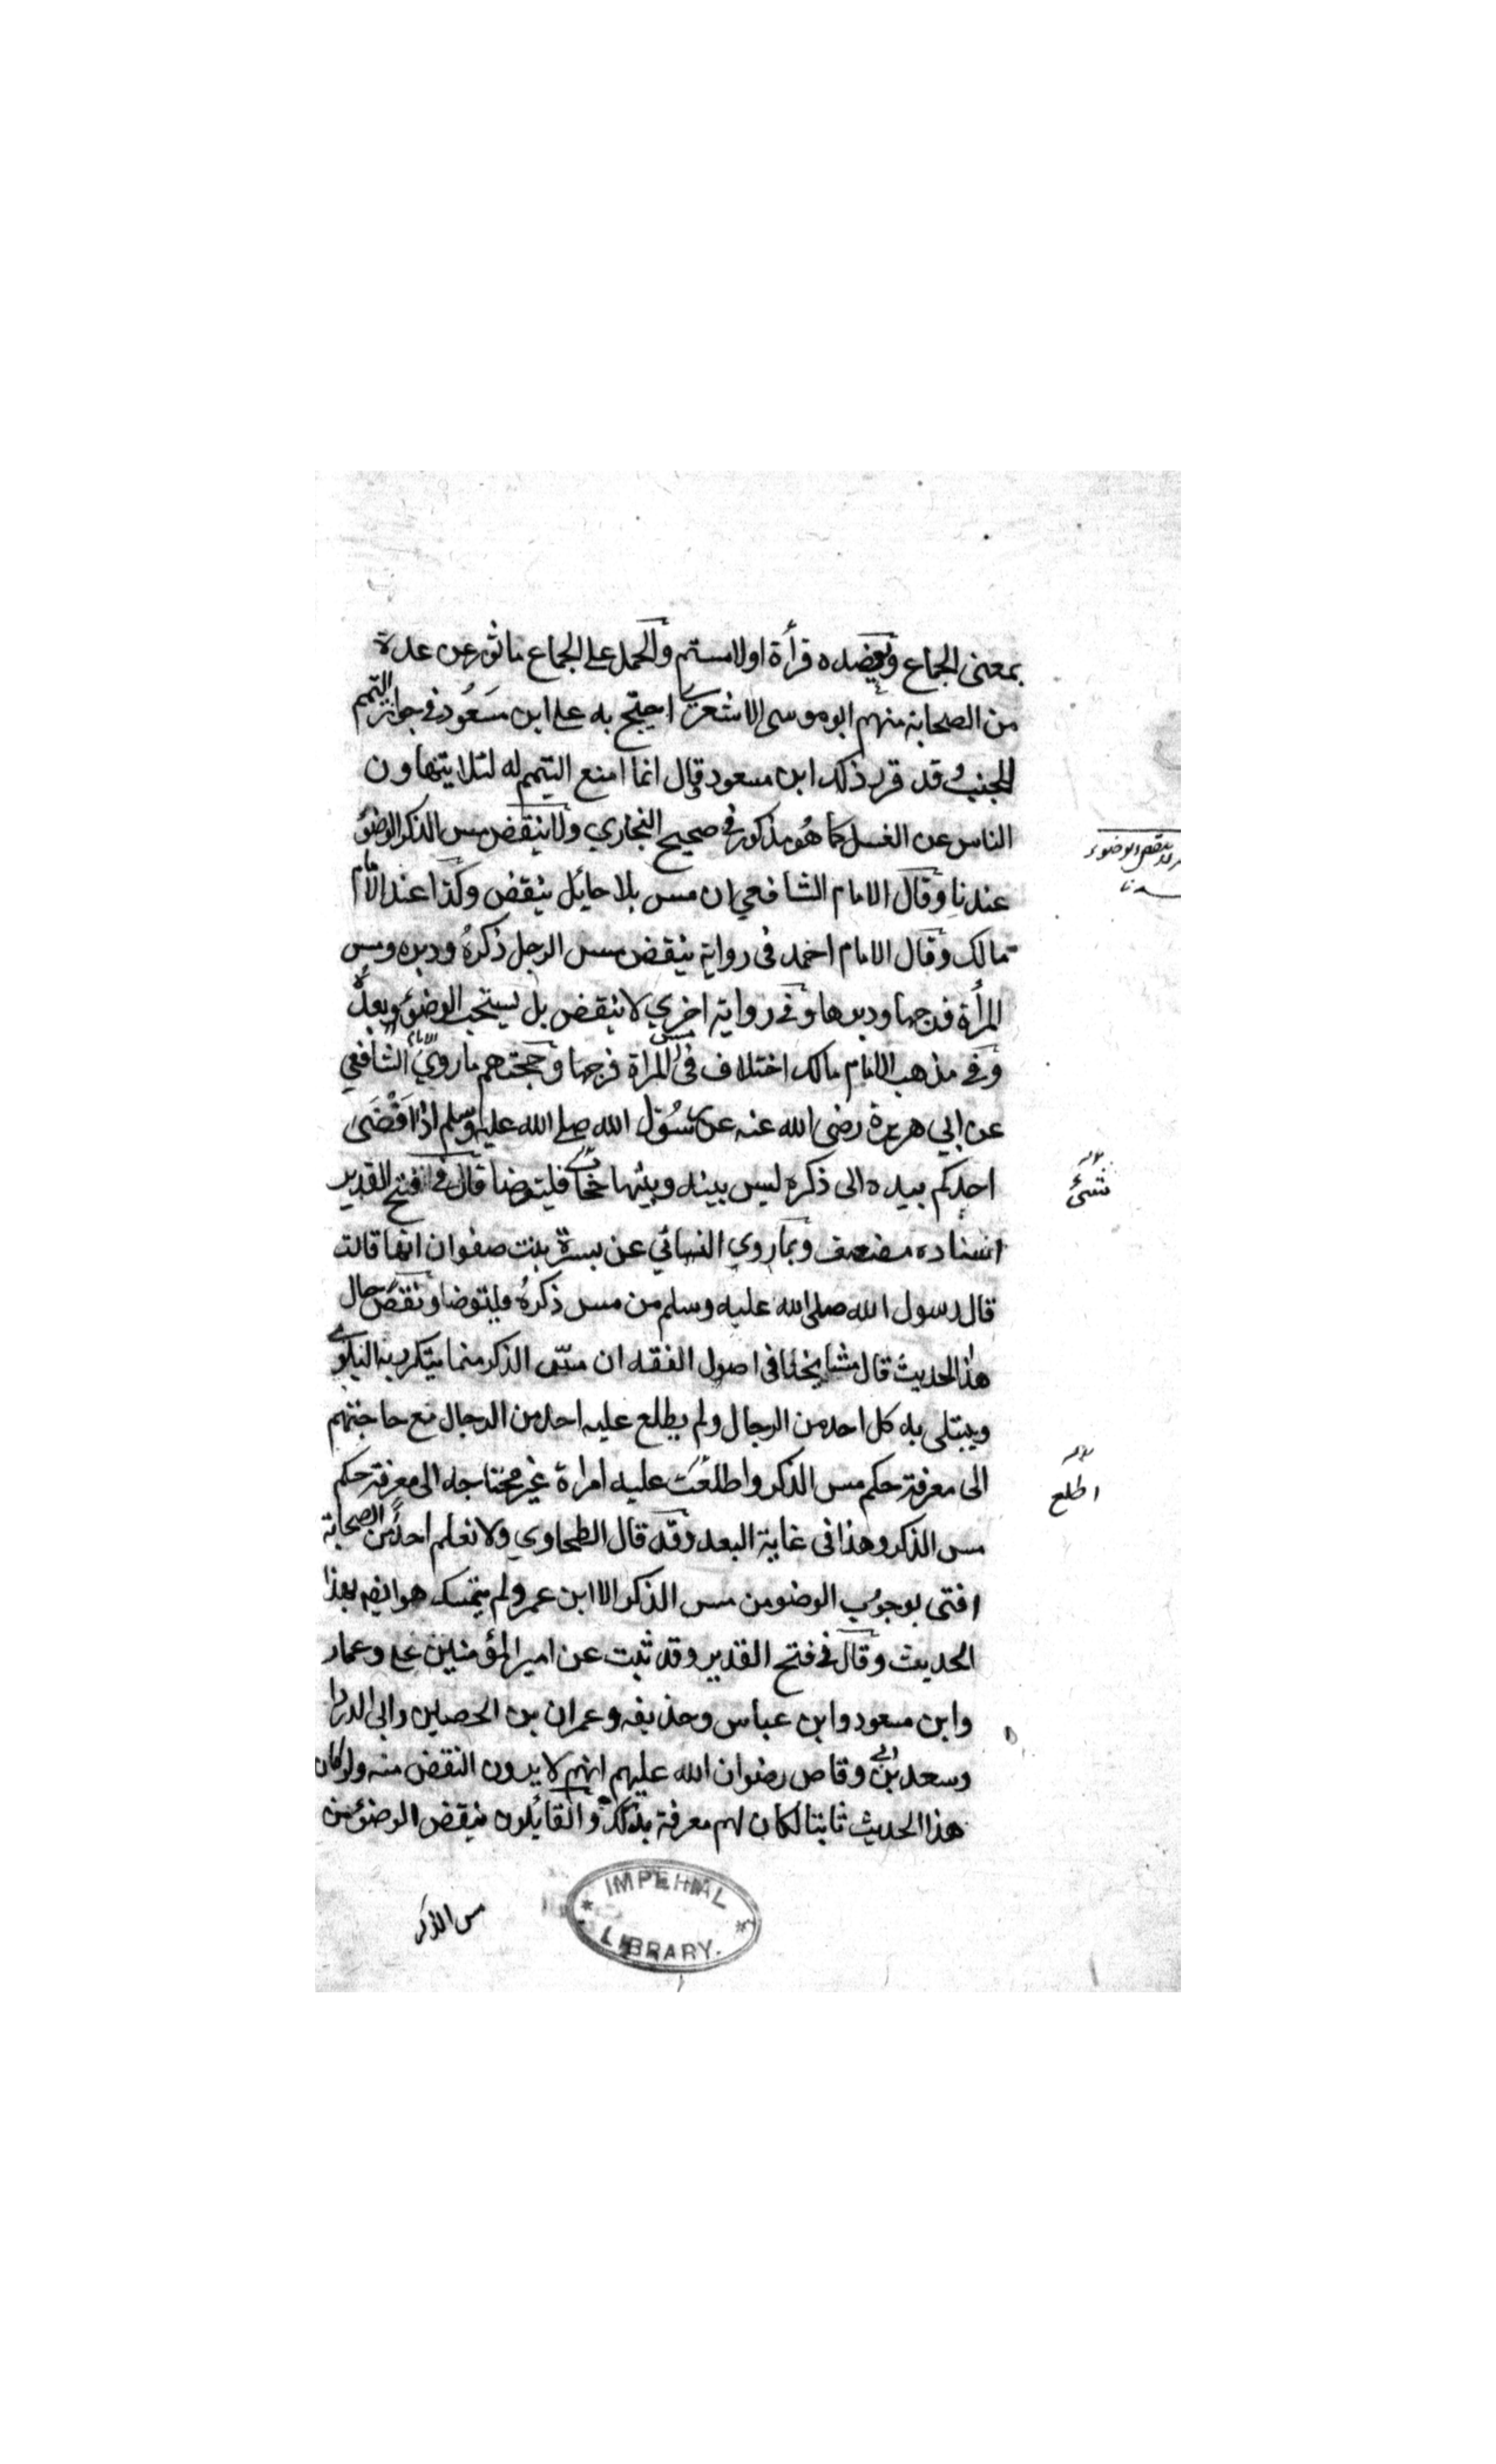 بمعنى الجماع ويعضده قرأة اولامستم والحمل على الجماع ماثور عن عدة
من الصحابة منهم ابو موسى الاشعري احتج به على ابن مسعود في جواز التيمم
للجنب وقد قرر ذلك ابن مسعود وقال انما امنع التيمم له لئلا يتهاون
الناس عن الغسل كما هو مذكور في صحيح البخاري ولا ينقض مس الذكر الوضوء
عندنا وقال الامام الشافعي ان مس بلا حائل ينقض وكذا عند الامام
مالك وقال الامام احمد في رواية ينقض مس الرجل ذكره ودبره ومس
المرأة فرجها ودبرها وفي رواية اخري لا ينقض بل يستحب الوضوء بعده
وفي مذهب الامام مالك اختلاف في مس المراة فرجها وحجتهم ما روي الامام الشافعي
عن ابي هريرة رضي الله عنه عن رسول الله صلى الله عليه وسلم اذا افضى
احدكم بيده الى ذكره ليس بينه وبينها فليتوضا قال في فتح القدير
اسناده مضعف وبما روي النسائي عن بسرة بنت صفوان انها قالت
قال رسول الله صلى الله عليه وسلم من مس ذكره فليتوضا ونقض حال
هذا الحديث قال مشايخنا في اصول الفقه ان مس الذكر مما يتكرر به البلوي
ويبتلى به كل احد من الرجال ولم يطلع عليه احد من الرجال مع حاجتهم
الى معرفة حكم مس الذكر واطلعت عليه امراة غير محتاجه الى معرفة حكم
مس الذكر وهذا في غاية البعد وقد قال الطحاوي ولا نعلم احدا من الصحابة
افتى بوجوب الوضو من مس الذكر الا ابن عمر ولم يتمسك هو ايضا بهذا
الحديث وقال في فتح القدير وقد ثبت عن امير المؤمنين على وعمار
وابن مسعود وابن عباس وحذيفه وعمران بن الحصين وابي الدردا
وسعد بن ابي وقاص رضوان الله عليهم انهم لا يرون النقض منه ولو كان
هذا الحديث ثابتا لكان لهم معرفة بذلك والقائلون بنقض الوضوء من
مس الذكر
ينقض الوضوء
شئ
اطلع
IMPERIAL
LIBRARY.